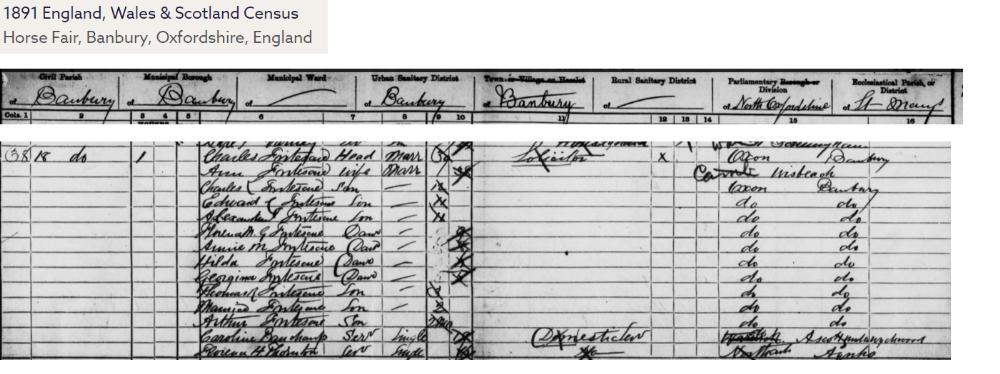 1891 England, Wales & Scotland Census
Horse Fair, Banbury, Oxfordshire, England
Civil Parish Municipal Borough Municipal Ward Urban Sanitary District Town or Village or Hamlet Rural Sanitary District Parliamentary Borough or Division Ecclesiastical Parish, or District
of Banbury of Banbury of of Banbury of Banbury of of North Oxfordshire of St Marys
Cols. 1 2 3 4 5 6 7 8 9 10 11 12 13 14 15 16
138 18 do 1 Charles Fortescue Head Marr Solicitor x Oxon Banbury
Ann Fortescue Wife Marr Camb Wisbeach
Charles Fortescue Son Oxon Banbury
Edward Fortescue Son do do
Alexander Fortescue Son do do
Florence M. G Fortescue Daur do do
Annie M Fortescue Daur do do
Hilda Fortescue Daur do do
Georgina Fortescue Daur do do
Thomas Fortescue Son do do
Fortescue Son do do
Arthur Fortescue Son do do
Caroline Serv Single Domestic Serv Ascott
Florence H Thornton Serv Single Northants Aynho